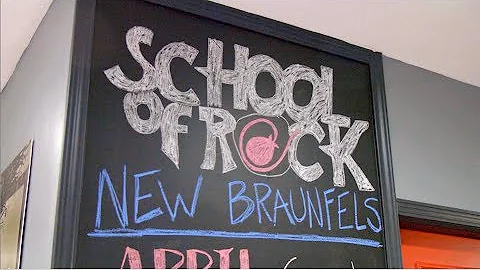 SCHOOL
OF ROCK
NEW BRAUNFELS
APRIL